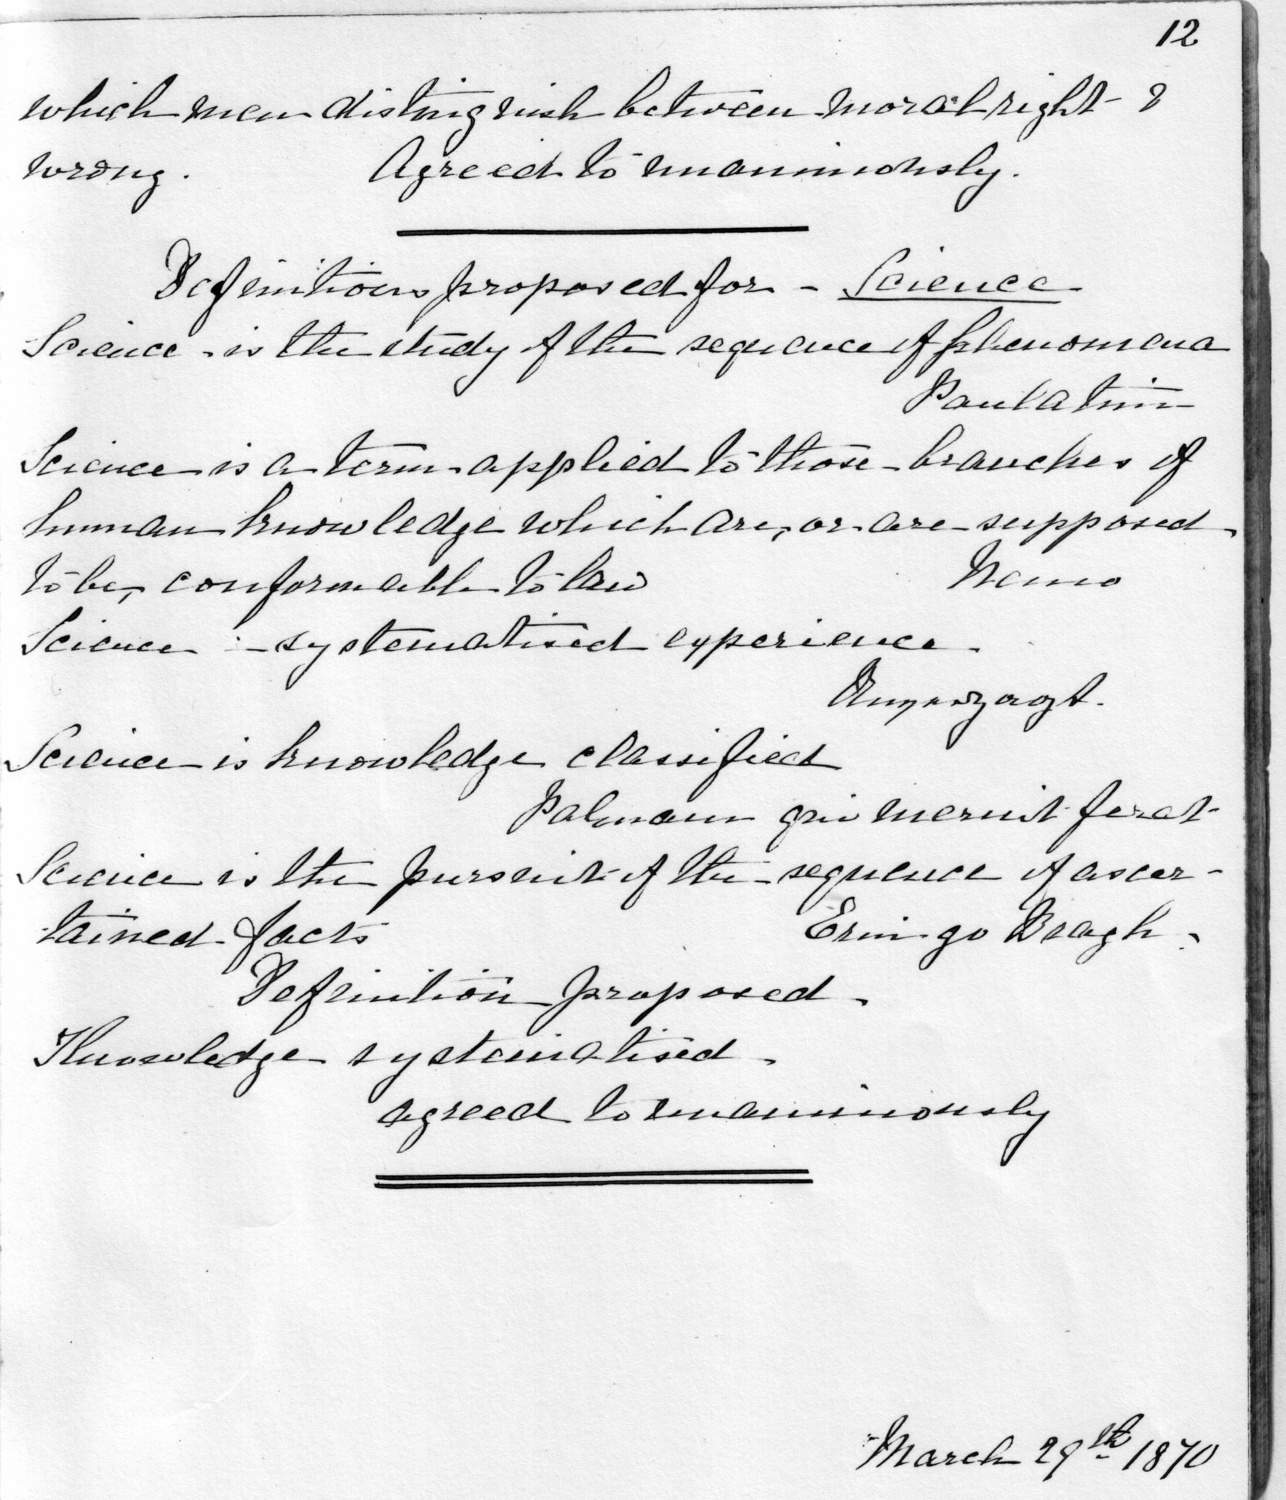 12
which men distinguish between moral right &
wrong. Agreed to unanimously.
Definitions proposed for - Science
Science - is the study of the sequence of phenomena
Paulatim
Science is a term applied to those branches of
human knowledge which are, or are supposed
to be, conformable to law Nemo
Science :- systematised experience.
Science is knowledge classified
Palmam qui meruit ferat
Science is the pursuit of the sequence of ascer-
tained facts Erin go Bragh.
Definition proposed.
Knowledge systematised.
agreed to unanimously
March 29th 1870